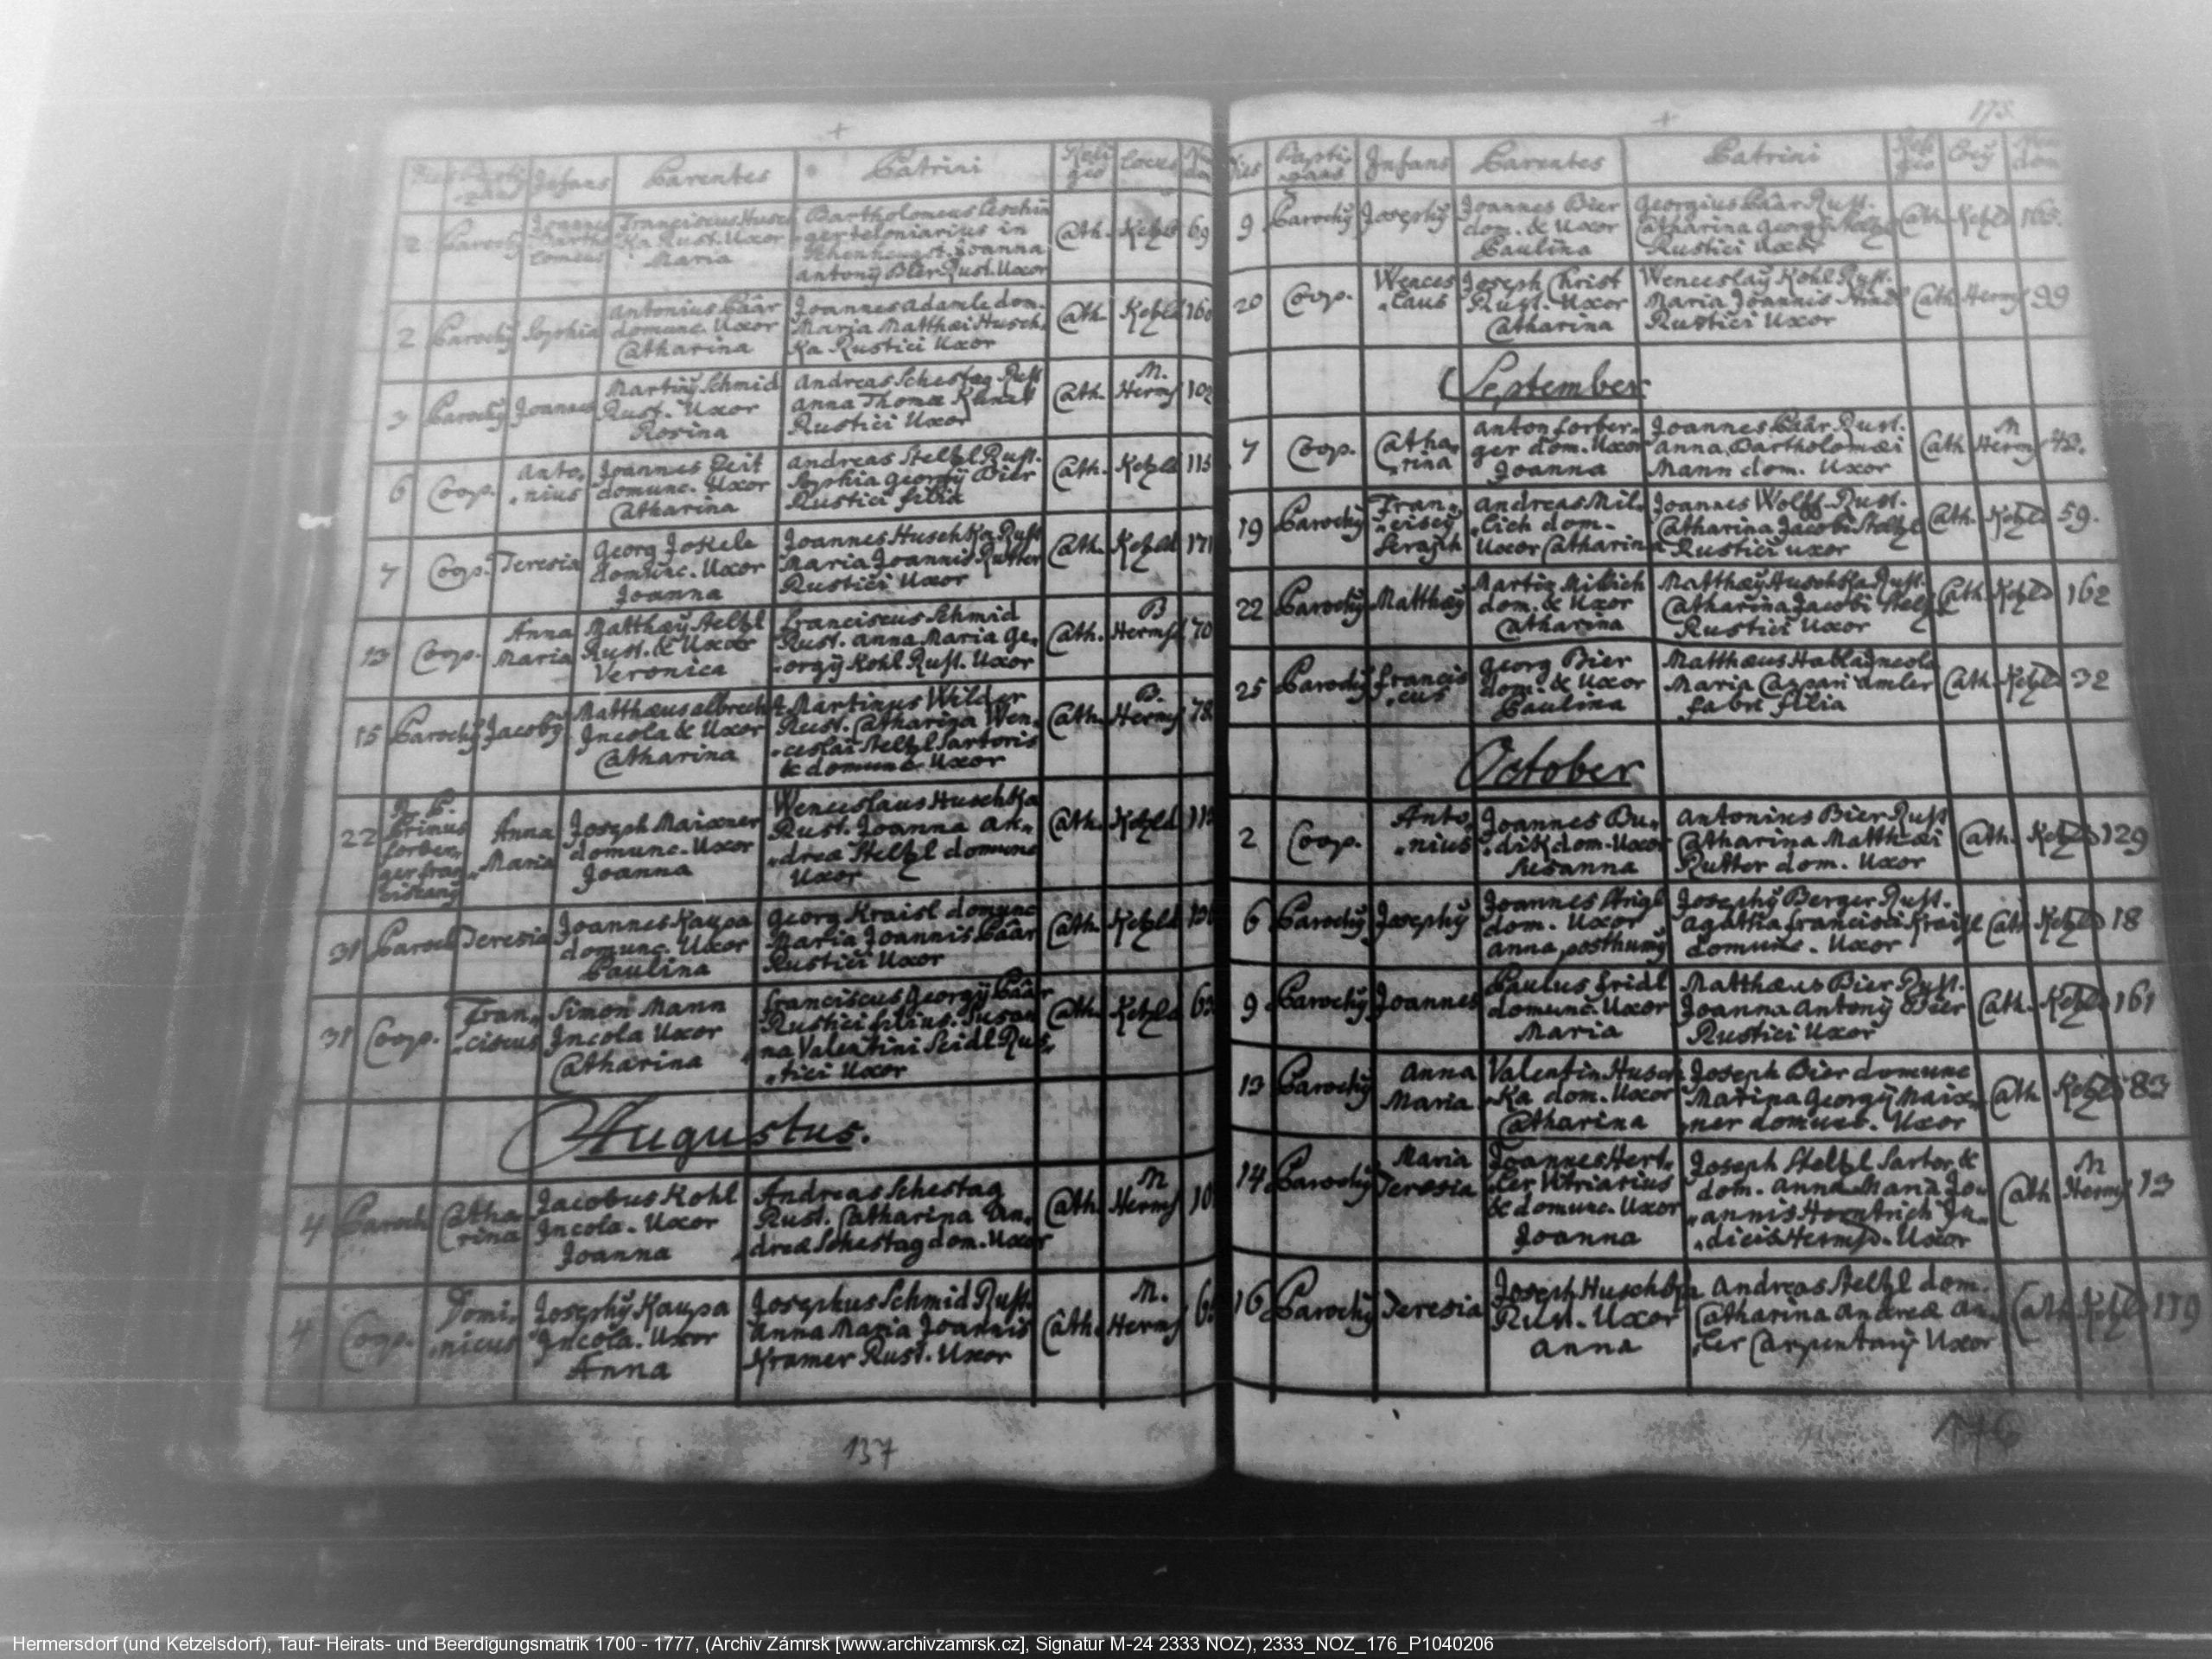 +
Parentes
Patrini
Reli
gio
Locus
2
Parochӱ
Joannes
Bartho
lomeus
Franciscus Husch
ka Rust. Uxor
Maria
Bartholomeus
ger teloniarius in
Joanna
Antonӱ Bier Rust. Uxor
Cath.
Ketzld
69
2
Parochӱ
Sophia
Antonius Bäär
domunc. Uxor
Catharina
Joannes Adamle dom.
Maria Matthæi Husch
ka Rustici Uxor
Cath.
Ketzld
160
3
Parochӱ
Joannes
Martinӱ Schmid
Rust. Uxor
Rosina
Andreas Schestag Rust
Anna Thomæ
Rustici Uxor
Cath.
M.
Herms
102
6
Coop.
Anto,
,nius
Joannes Zeit
domunc. Uxor
Catharina
Andreas Steltzl Rust.
Sophia Georgӱ Bier
Rustici filia
Cath.
Ketzld
115
7
Coop.
Teresia
Georg Jokele
domunc. Uxor
Joanna
Joannes Huschka Rust
Maria Joannis Rutter
Rustici Uxor
Cath.
Ketzld
171
13
Coop.
Anna
Maria
Matthæӱ Steltzl
Rust. & Uxor
Veronica
Franciscus Schmid
Rust. Anna Maria Ge,
,orgӱ Kohl Rust. Uxor
Cath.
B
Hermsd
70
15
Parochӱ
Jacobӱ
Matthæus Albrecht
Incola & Uxor
Catharina
Martinus Wilder
Rust. Catharina Wen,
,ceslai Steltzl Sartoris
& domunc. Uxor
Cath.
B.
Herms
78
22
Primus
forber,
ger fran
ciskanӱ
Anna
Maria
Joseph Maixner
domunc. Uxor
Joanna
Wenceslaus Huschka
Rust. Joanna An,
,dreæ Steltzl domunc
Uxor
Cath.
Ketzld
31
Paroch
Teresia
Joannes Kaupa
domunc. Uxor
Paulina
Georg Kraisl domunc
Maria Joannis Bäär
Rustici Uxor
Cath.
Ketzld
31
Coop.
Fran,
,ciscus
Simon Mann
Incola Uxor
Catharina
Franciscus Georgӱ Bäär
Rustici filius. Susan
,na Valentini Seidl Rus,
,tici Uxor
Cath.
Ketzld
Augustus.
4
Paroch
Catha
rina
Jacobus Kohl
Incola. Uxor
Joanna
Andreas Schestag
Rust. Catharina An,
,dreæ Schestag dom. Uxor
Cath.
M
Herms
10
4
Coop.
Domi,
,nicus
Josephӱ Kaupa
Incola. Uxor
Anna
Josephus Schmid Rust.
Anna Maria Joannis
Kramer Rust. Uxor
Cath.
M.
Herms
137
+
175
Dies
Infans
Parentes
Patrini
9
Parochӱ
Josephӱ
Joannes Bier
dom. & Uxor
Paulina
Georgius Bäär Rust.
Catharina Georgӱ Steltzl
Rustici Uxor
Cath.
Ketzld
165.
20
Coop.
Wences
,laus
Joseph Christ
Rust. Uxor
Catharina
Wenceslaӱ Kohl Rust.
Maria Joannis
Rustici Uxor
Cath
Herms
99
September
7
Coop.
Catha,
,rina
Anton forber,
ger dom. Uxor
Joanna
Joannes Bäär Rust.
Anna Bartholomæi
Mann dom. Uxor
Cath
M
Herms
43.
19
Parochӱ
Fran,
,ciscӱ
Seraph
Andreas Mil,
,lich dom.
Uxor Catharina
Joannes Wolff Rust.
Catharina Jacobi Steltzl
Rustici uxor
Cath.
Ketzld
59.
22
Parochӱ
Matthæӱ
Martin Millich
dom. & Uxor
Catharina
Matthæӱ Huschka Rust.
Catharina Jacobi Steltzl
Rustici Uxor
Cath.
Ketzld
162
25
Parochӱ
Francis
,cus
Georg Bier
dom. & Uxor
Paulina
Matthæus incola
Maria Caspari Amler
fabri filia
Cath.
Ketzld
32
October
2
Coop.
Anto,
,nius
Joannes Bu,
,dik dom. Uxor
Susanna
Antonius Bier Rust
Catharina Matthæi
Rutter dom. Uxor
Cath.
Ketzld
129
6
Parochӱ
Josephӱ
Joannes Strigl
dom. Uxor
Anna posthumӱ
Josephӱ Berger Rust.
Agatha Francisci Kraisl
domunc. Uxor
Cath
Ketzld
18
9
Parochӱ
Joannes
Paulus Fridl
domunc. Uxor
Maria
Matthæus Bier Rust.
Joanna Antonӱ Bier
Rustici Uxor
Cath.
Ketzld
161
13
Parochӱ
Anna
Maria
Valentin Husch
,ka dom. Uxor
Catharina
Joseph Bier domunc
Marina Georgӱ Maix,
,ner domunc. Uxor
Cath
Ketzld
83
14
Parochӱ
Maria
Teresia
Joannes Hert,
,ler Vitriarius
& domunc. Uxor
Joanna
Joseph Steltzl Sartor &
dom. Anna Maria Jo,
,annis Horntrich Ju,
,dicis Hermsd. Uxor
Cath
M
Herms
13
16
Parochӱ
Teresia
Joseph Huschka
Rust. Uxor
Anna
Andreas Steltzl dom.
Catharina Andreæ Am,
,ler Carpentarӱ Uxor
Cath
Ketzld
119
176
Hermersdorf (und Ketzelsdorf), Tauf- Heirats- und Beerdigungsmatrik 1700 - 1777, (Archiv Zámrsk [www.archivzamrsk.cz], Signatur M-24 2333 NOZ), 2333_NOZ_176_P1040206